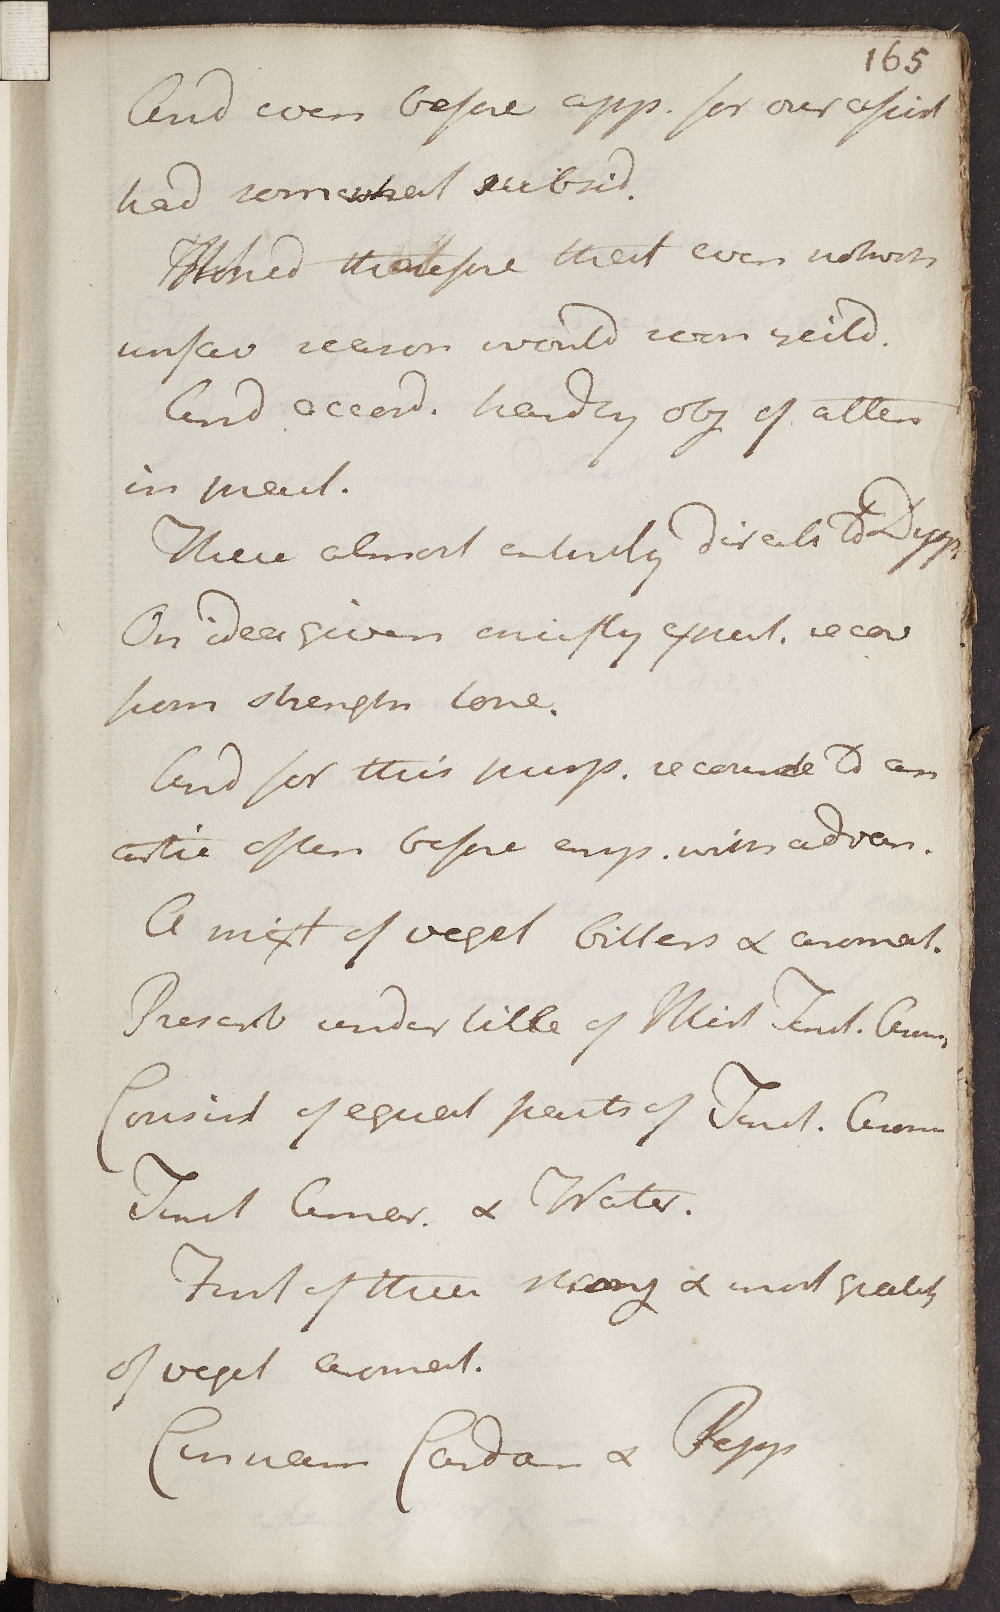 165
And even before app. for our assist
had somewhat subsid.
Hoped therefore that even
unfav season would soon yeild.
And accord. hardly obj of atten
in treat.
These almost entirely directed to Dysp.
On idea given chiefly expect. recov
from strength tone.
And for this purp. recourse to an
artic often before emp. with advan.
A mixt of veget bitters & aromat.
Prescrib under title of Mist Tinct. Arom.
Consist of equal parts of Tinct. Arom
Tinct Amar. & Water.
First of these strong & most grateful
of veget aromat.
Cinnam Cardam & Pepp